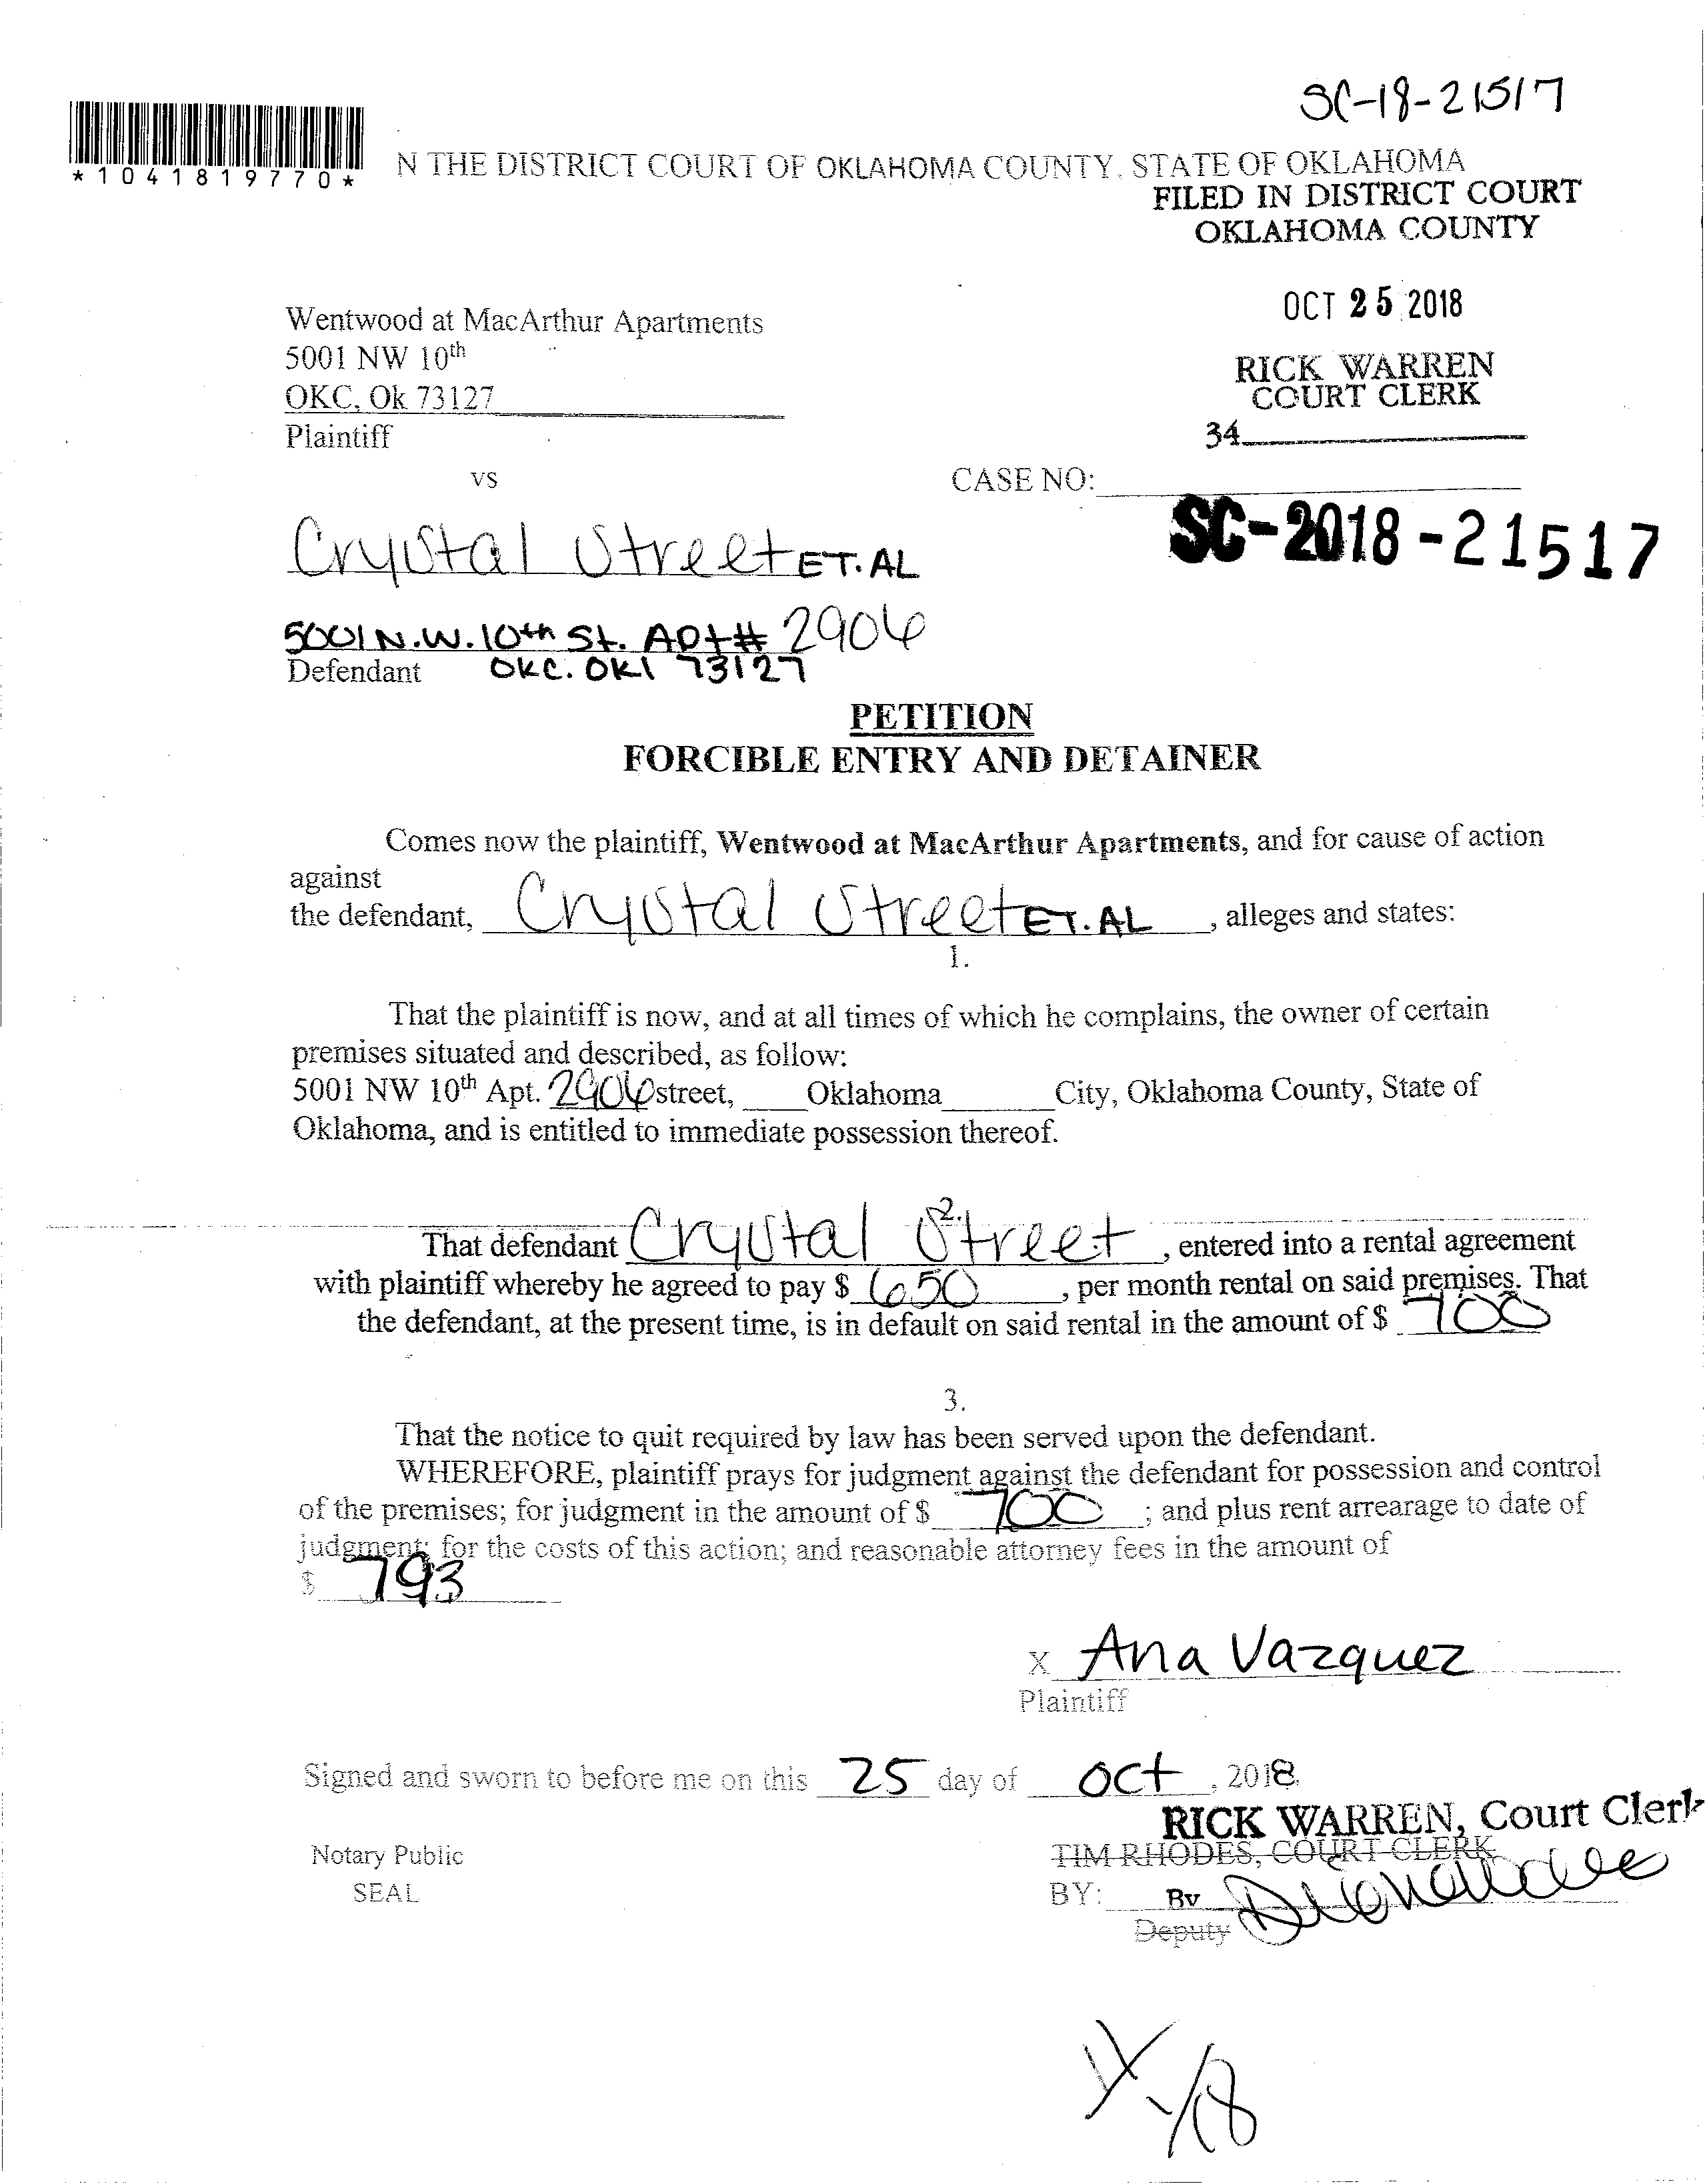 SC-18-21517
*1041819770*
N THE DISTRICT COURT OF OKLAHOMA COUNTY, STATE OF OKLAHOMA
FILED IN DISTRICT COURT
OKLAHOMA COUNTY
OCT 25 2018
RICK WARREN
COURT CLERK
34
Wentwood at MacArthur Apartments
5001 NW 10th
OKC, Ok 73127
Plaintiff
vs
CASE NO:
SC-2018-21517
Crystal Street ET.AL
5001 N.W. 10th St. Apt# 2906
Defendant OKC. OKl 73127
PETITION
FORCIBLE ENTRY AND DETAINER
Comes now the plaintiff, Wentwood at MacArthur Apartments, and for cause of action
against
the defendant, Crystal Street ET.AL, alleges and states:
1.
That the plaintiff is now, and at all times of which he complains, the owner of certain
premises situated and described, as follow:
5001 NW 10th Apt. 2906 street, Oklahoma City, Oklahoma County, State of
Oklahoma, and is entitled to immediate possession thereof.
2.
That defendant Crystal Street, entered into a rental agreement
with plaintiff whereby he agreed to pay $ 650, per month rental on said premises. That
the defendant, at the present time, is in default on said rental in the amount of $ 700
3.
That the notice to quit required by law has been served upon the defendant.
WHEREFORE, plaintiff prays for judgment against the defendant for possession and control
of the premises; for judgment in the amount of $ 700; and plus rent arrearage to date of
judgment; for the costs of this action; and reasonable attorney fees in the amount of
$ 793
X Ana Vazquez
Plaintiff
Signed and sworn to before me on this 25 day of Oct, 2018.
RICK WARREN, Court Clerk
Notary Public
TIM RHODES, COURT CLERK
SEAL
BY: By
Deputy